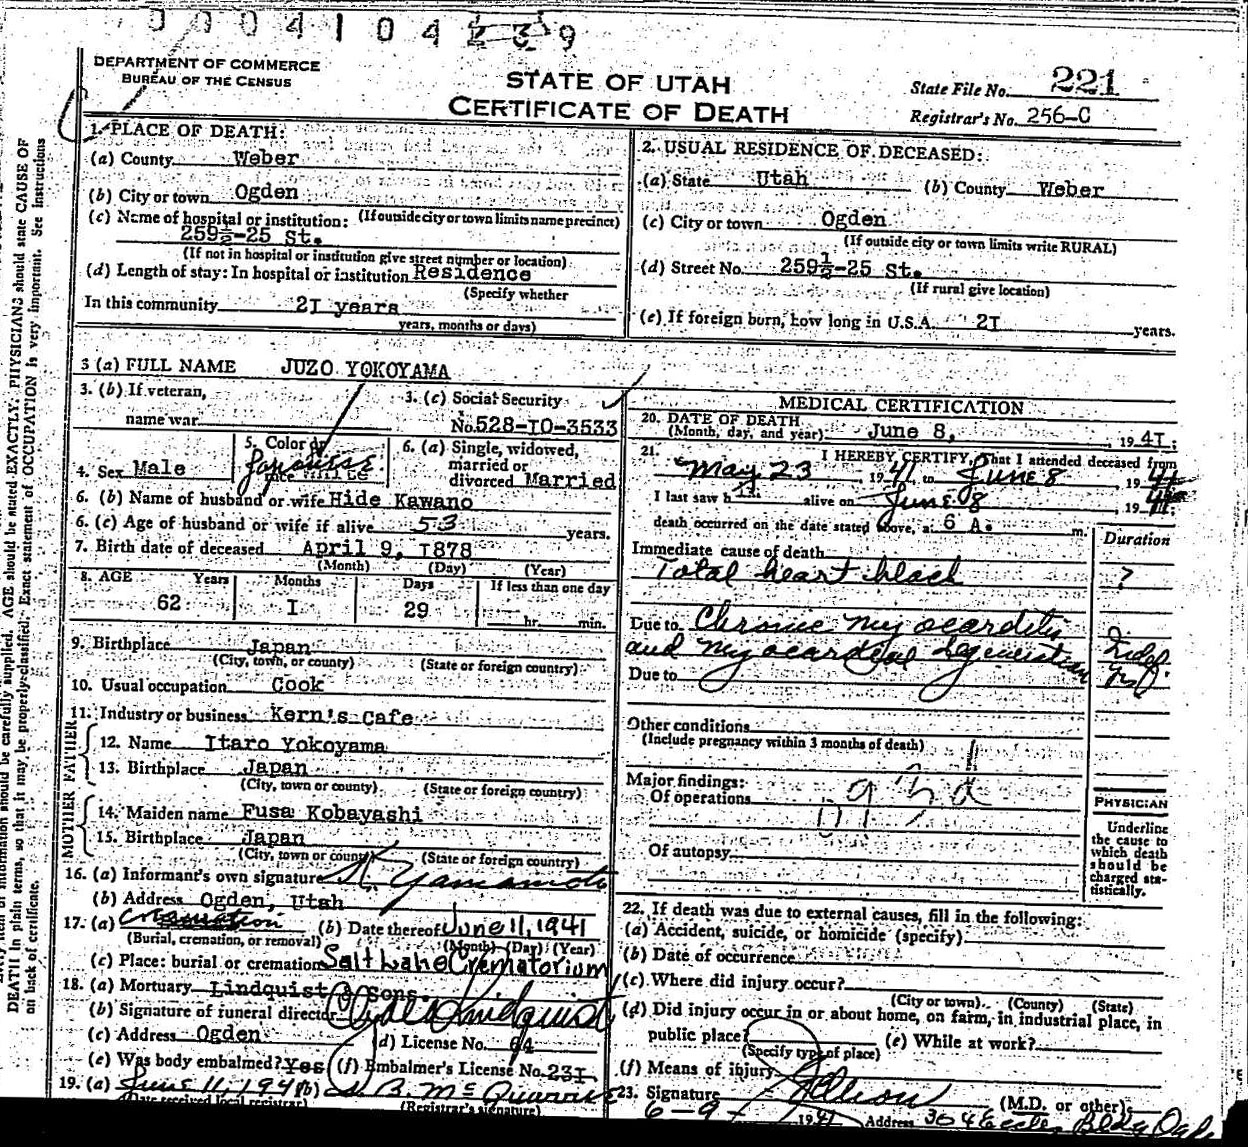 0 0 0 4 1 0 4 2 3 9
DEPARTMENT OF COMMERCE
BUREAU OF THE CENSUS
STATE OF UTAH
CERTIFICATE OF DEATH
State File No. 221
Registrar's No. 256-C
1. PLACE OF DEATH:
(a) County Weber
(b) City or town Ogden
(If outside city or town limits name precinct)
(c) Name of hospital or institution:
259½-25 St.
(If not in hospital or institution give street number or location)
(d) Length of stay: In hospital or institution Residence
(Specify whether
In this community 2I years
years, months or days)
2. USUAL RESIDENCE OF DECEASED:
(a) State Utah (b) County Weber
(c) City or town Ogden
(If outside city or town limits write RURAL)
(d) Street No. 259½-25 St.
(If rural give location)
(e) If foreign born, how long in U.S.A. 2I years.
3 (a) FULL NAME JUZO YOKOYAMA
3. (b) If veteran,
name war
3. (c) Social Security
No. 528-IO-3533
4. Sex Male
5. Color or
race White
Japanese
6. (a) Single, widowed,
married or
divorced Married
6. (b) Name of husband or wife Hide Kawano
6. (c) Age of husband or wife if alive 53 years.
7. Birth date of deceased April 9, I878
(Month) (Day) (Year)
8. AGE Years Months Days If less than one day
62 I 29 hr. min.
9. Birthplace Japan
(City, town, or county) (State or foreign country)
10. Usual occupation Cook
11. Industry or business Kern's Cafe
FATHER
12. Name Itaro Yokoyama
13. Birthplace Japan
(City, town or county) (State or foreign country)
MOTHER
14. Maiden name Fusa Kobayashi
15. Birthplace Japan
(City, town or county) (State or foreign country)
16. (a) Informant's own signature K. Yamamoto
(b) Address Ogden, Utah
17. (a) Cremation (b) Date thereof June 11, 1941
(Burial, cremation, or removal) (Month) (Day) (Year)
(c) Place: burial or cremation Salt Lake Crematorium
18. (a) Mortuary Lindquist & Sons.
(b) Signature of funeral director Clyde Lindquist
(c) Address Ogden (d) License No. 64
(e) Was body embalmed? Yes (f) Embalmer's License No. 23I
19. (a) June 11, 1941 (b) B. McQuarrie
(Date received local registrar) (Registrar's signature)
MEDICAL CERTIFICATION
20. DATE OF DEATH
(Month, day, and year) June 8, , 194I;
21. I HEREBY CERTIFY, That I attended deceased from
May 23, 1941, to June 8, 1941
I last saw h alive on June 8, 1941;
death occurred on the date stated above, at 6 A. m.
Duration
Immediate cause of death
Total heart block ?
Due to Chronic myocarditis
and myocardial degeneration
Due to
Other conditions
(Include pregnancy within 3 months of death)
Major findings:
Of operations
Of autopsy
PHYSICIAN
Underline
the cause to
which death
should be
charged sta-
tistically.
22. If death was due to external causes, fill in the following:
(a) Accident, suicide, or homicide (specify)
(b) Date of occurrence
(c) Where did injury occur?
(City or town) (County) (State)
(d) Did injury occur in or about home, on farm, in industrial place, in
public place? (e) While at work?
(Specify type of place)
(f) Means of injury
23. Signature (M.D. or other)
6-9- 1941 Address 304 Eccles Bldg
DEATH in plain terms, so that it may be properly classified. Exact statement of OCCUPATION is very important. See instructions
on back of certificate.
information should be carefully supplied. AGE should be stated EXACTLY. PHYSICIANS should state CAUSE OF